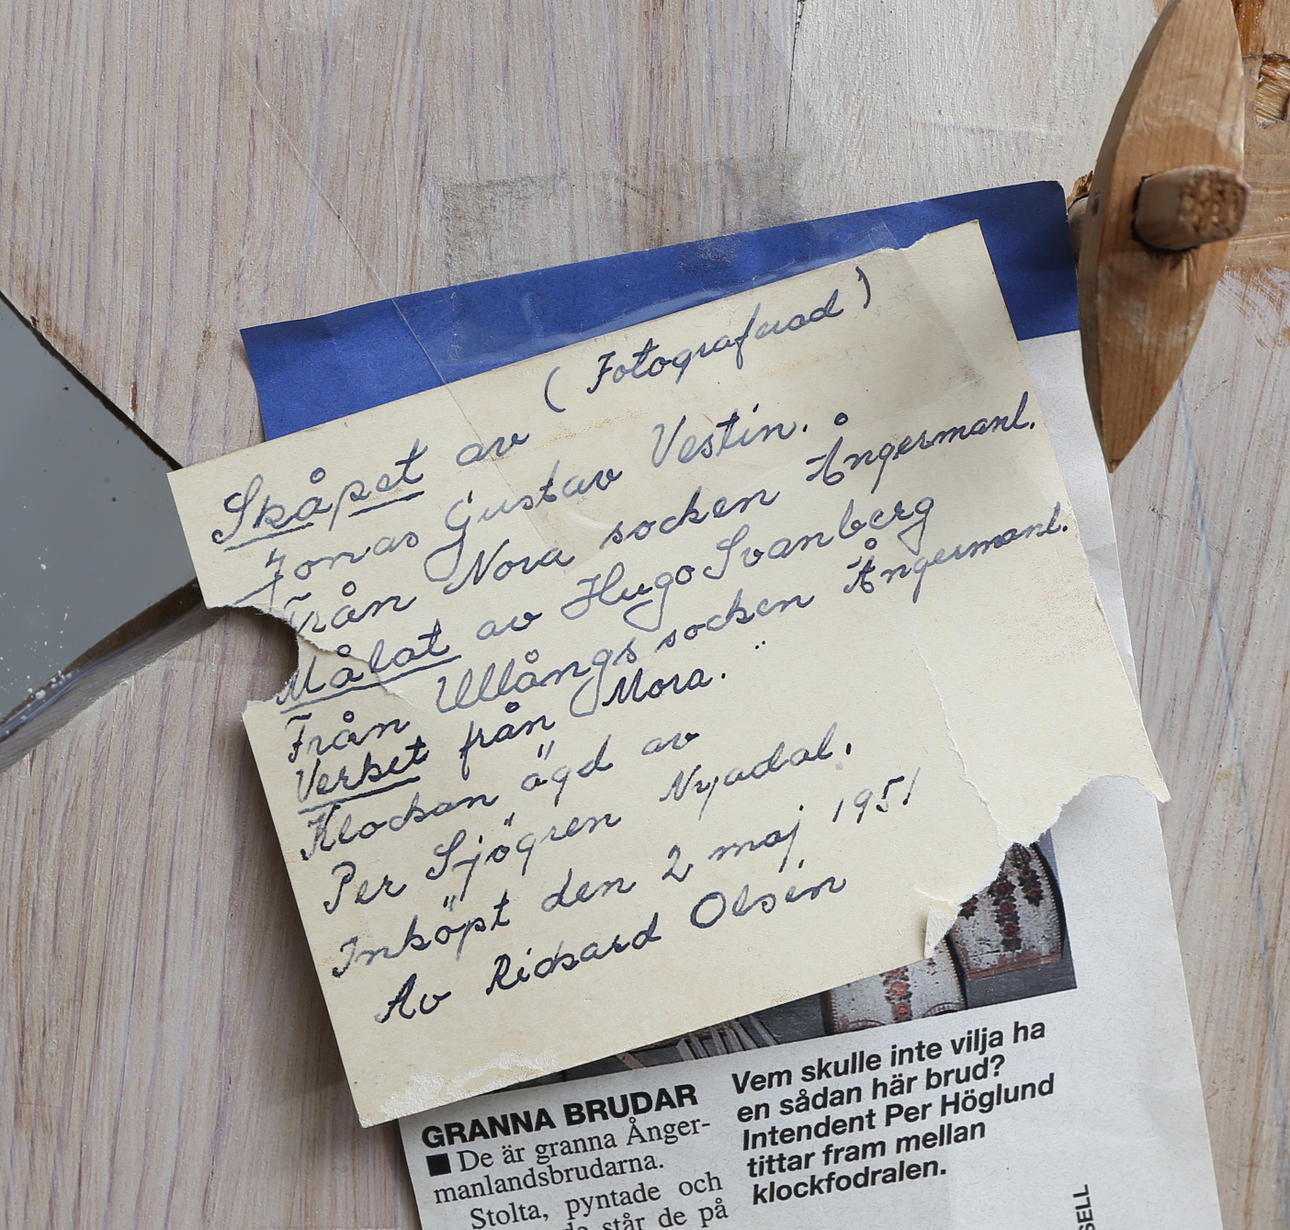 ( Fotograferad )
Skåpet av
Jonas Gustav Vestin.
Från Nora socken Ångermanl.
Målat av Hugo Svanberg
Från Ullångs socken Ångermanl.
Verket från Mora.
Klockan ägd av
Per Sjögren Nyadal.
Inköpt den 2 maj 1951
Av Rickard Olsén
GRANNA BRUDAR
■ De är granna Ånger-
manlandsbrudarna.
Stolta, pyntade och
står de på
Vem skulle inte vilja ha
en sådan här brud?
Intendent Per Höglund
tittar fram mellan
klockfodralen.